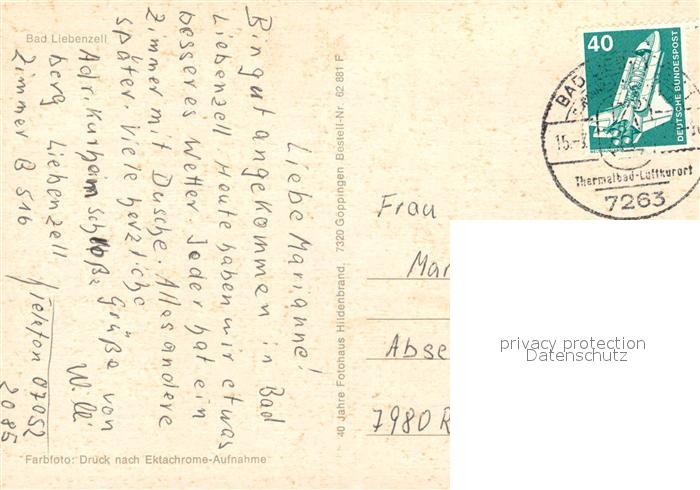 Bad Liebenzell
Liebe Marianne!
Bin gut angekommen in Bad
Liebenzell Heute haben wir etwas
besseres Wetter. Jeder hat ein
Zimmer mit Dusche. Alles andere
später. Viele herzliche
Grüße von
Willi
Adr. Kurheim Schloß
berg Liebenzell
Zimmer B 516
Telefon 07052
2086
Farbfoto: Druck nach Ektachrome-Aufnahme
40 Jahre Fotohaus Hildenbrand, 7320 Göppingen Bestell-Nr. 62 881 F
40
DEUTSCHE BUNDESPOST
BAD
15.-
Thermalbad-Luftkurort
7263
Frau
Mar
Abse
7980 R
privacy protection
Datenschutz